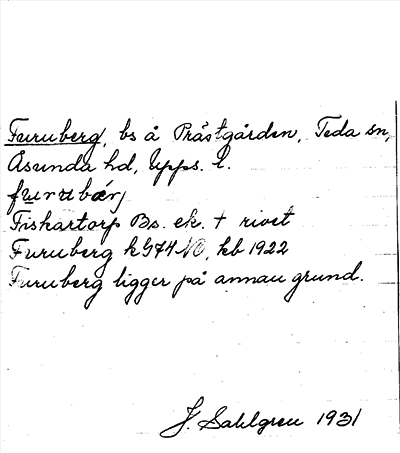 Furuberg, bs å Prästgården, Teda sn,
Åsunda hd, Upps. l.
furubær,
Fiskartorp Bs. ek. + rivet
Furuberg k G74 NO, kb 1922
Furuberg ligger på annan grund.
J. Sahlgren 1931